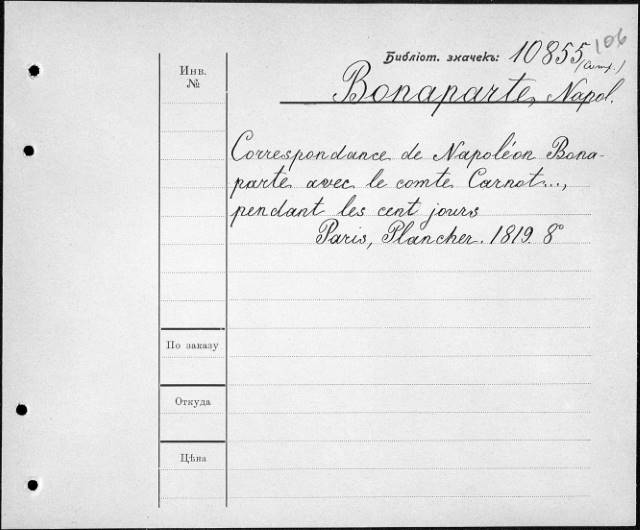 106
Библіот. значекъ: 10855
Инв.
№
Bonaparte, Napol.
Correspondance de Napoléon Bona-
parte avec le comte Carnot...,
pendant les cent jours
Paris, Plancher. 1819. 8°
По заказу
Откуда
Цѣна